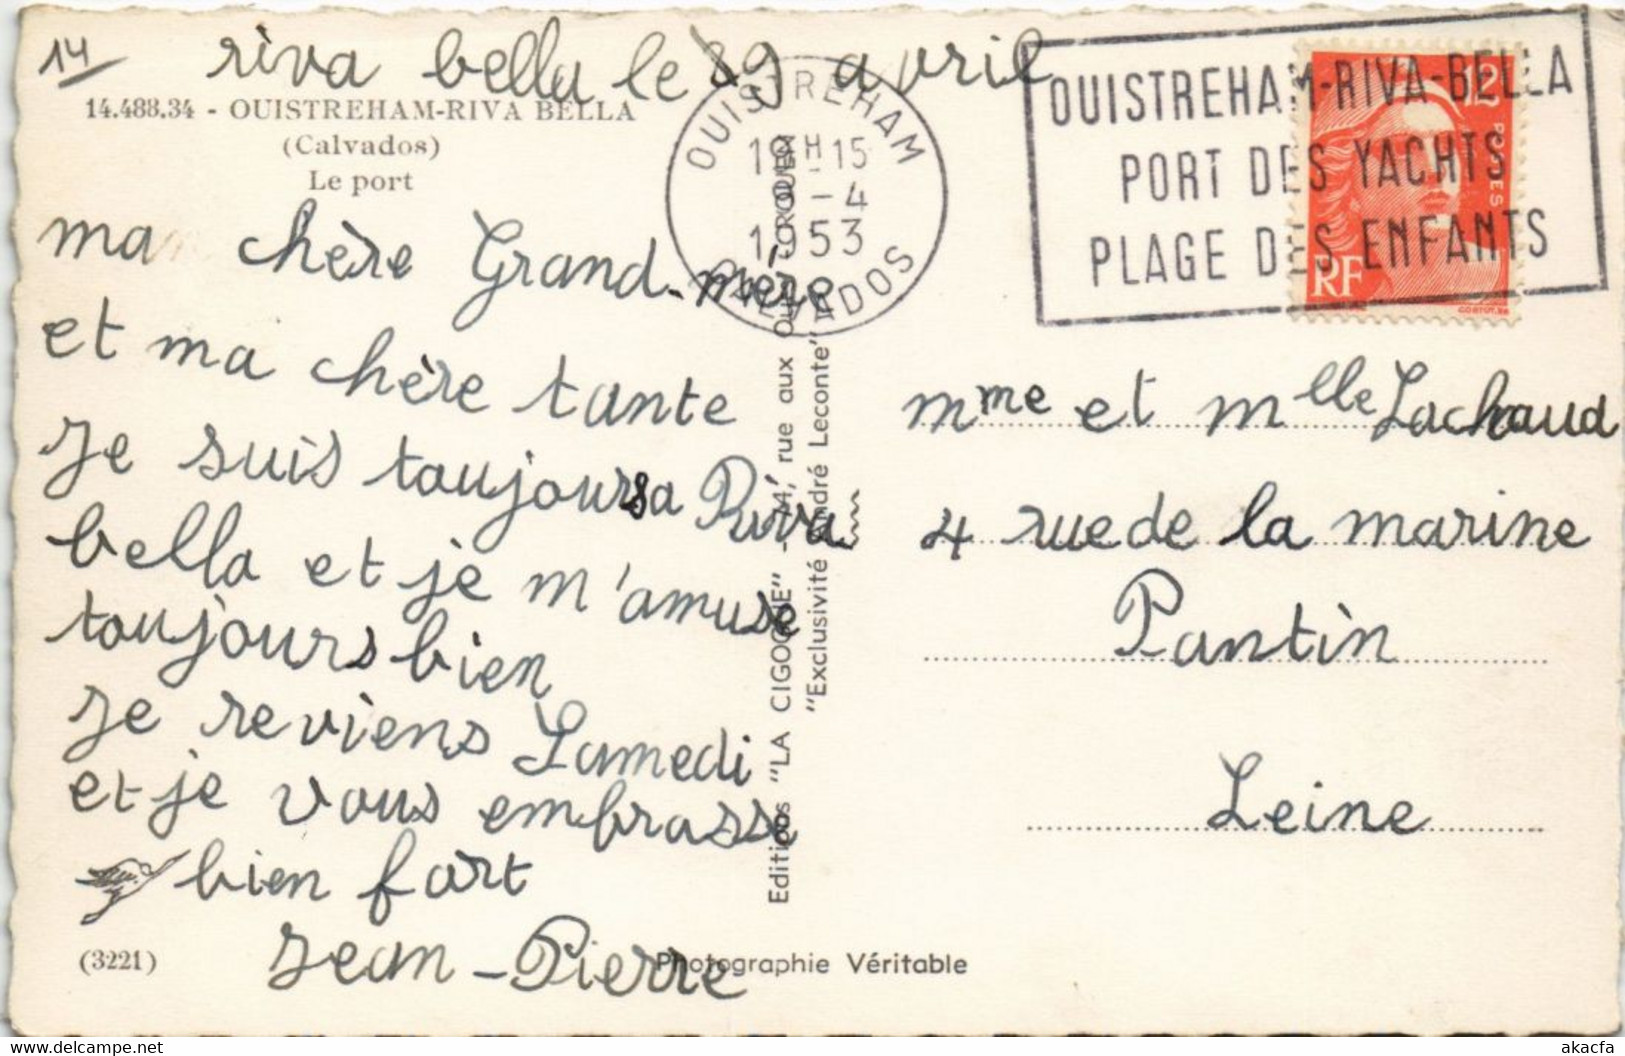 14 riva bella le 29 avril
14.488.34 - OUISTREHAM-RIVA BELLA
(Calvados)
Le port
ma chère Grand-mère
et ma chère tante
Je suis toujours a Riva
bella et je m'amuse
toujours bien
Je reviens Samedi
et je vous embrasse
bien fort
Jean-Pierre
(3221)
Photographie Véritable
Editions "LA CIGOGNE" - 74, rue aux
"Exclusivité André Leconte"
OUISTREHAM
19H15
-4
1953
CALVADOS
OUISTREHAM-RIVA-BELLA
PORT DES YACHTS
PLAGE DES ENFANTS
12
POSTES
RF
Mme et Mlle Lachaud
4 rue de la marine
Pantin
Seine
akacfa